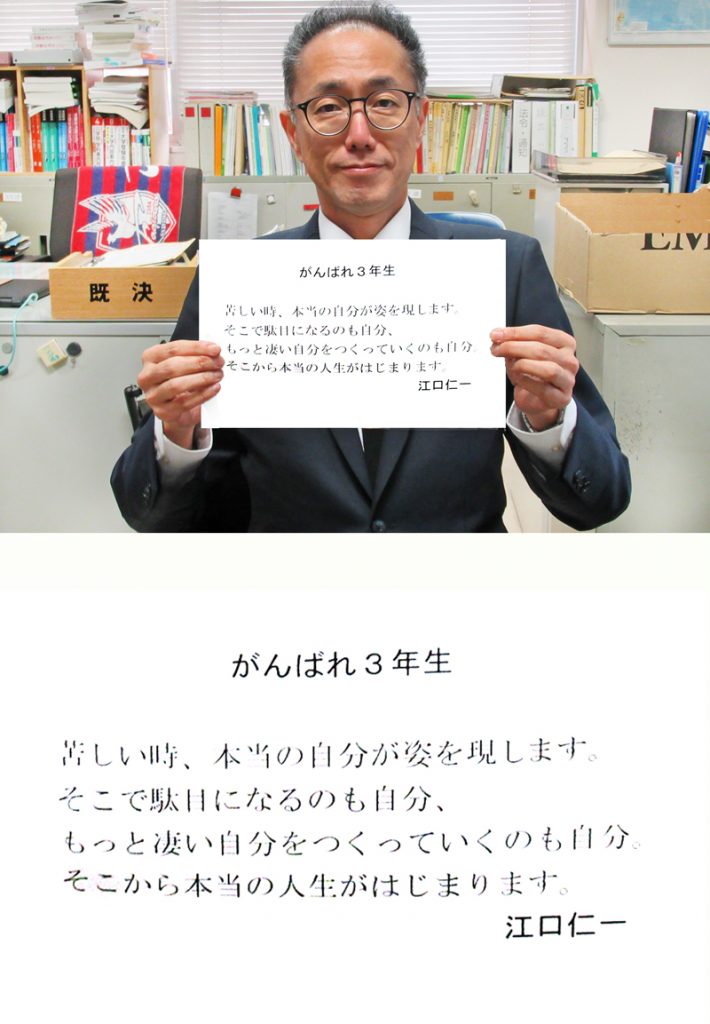 法令・通知
既 決
EM
がんばれ3年生
苦しい時、本当の自分が姿を現します。
そこで駄目になるのも自分、
もっと凄い自分をつくっていくのも自分。
そこから本当の人生がはじまります。
江口仁一
がんばれ3年生
苦しい時、本当の自分が姿を現します。
そこで駄目になるのも自分、
もっと凄い自分をつくっていくのも自分。
そこから本当の人生がはじまります。
江口仁一